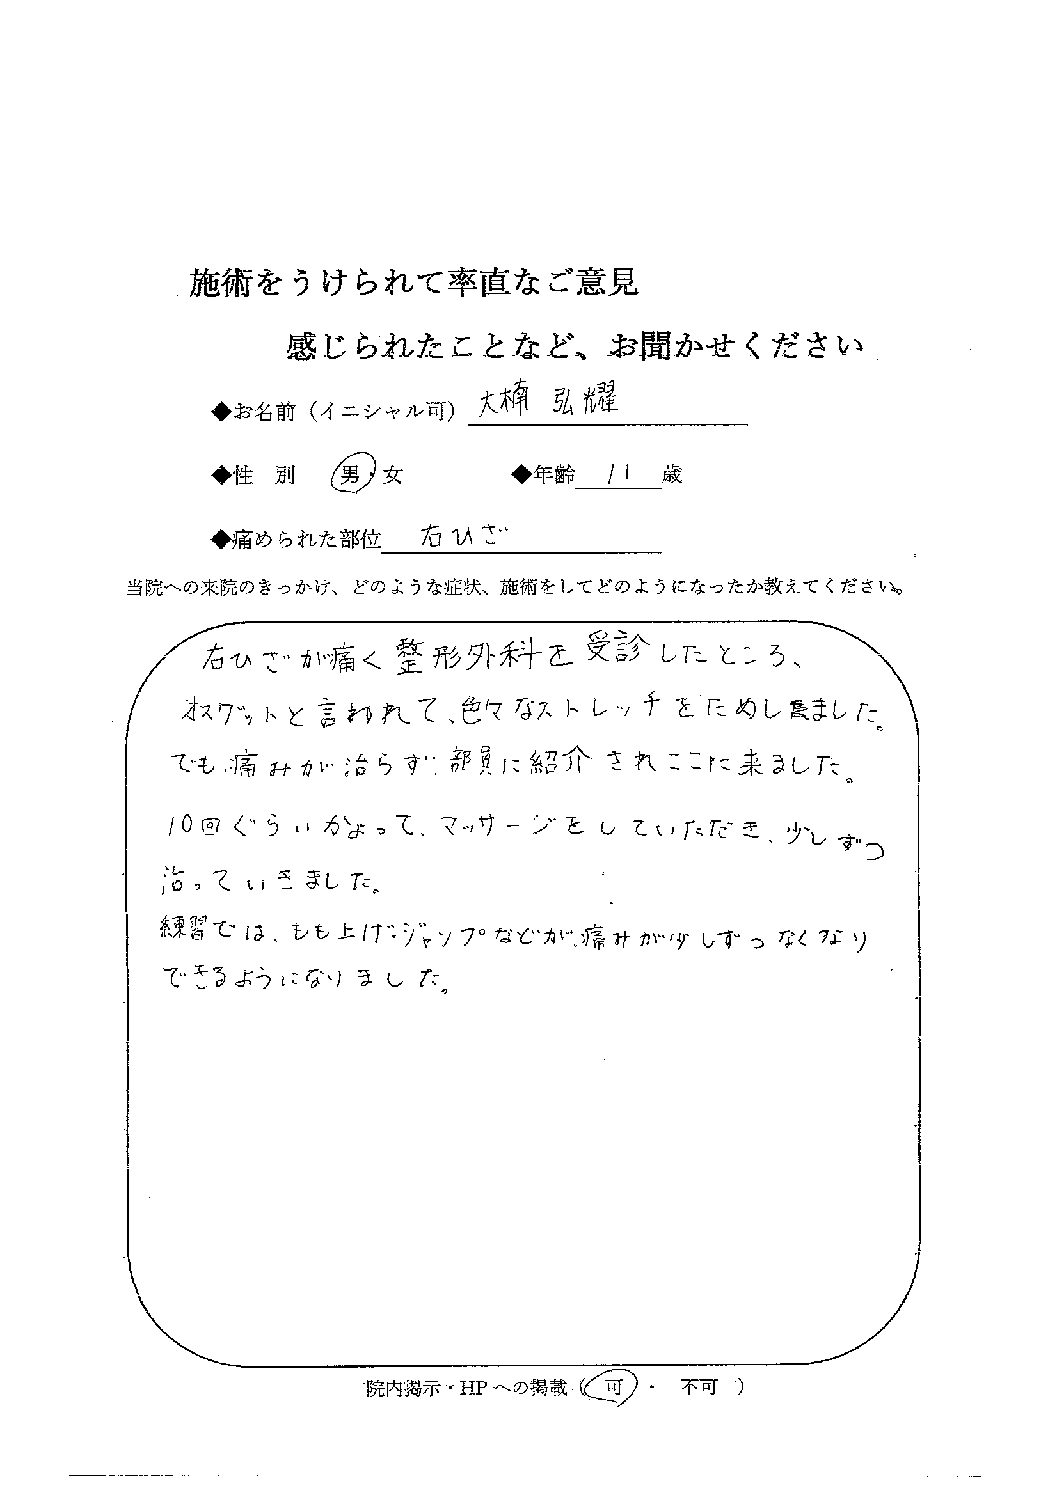 施術をうけられて率直なご意見
感じられたことなど、お聞かせください
◆お名前（イニシャル可） 大楠 弘耀
◆性 別 男・女 ◆年齢 11 歳
◆痛められた部位 右ひざ
当院への来院のきっかけ、どのような症状、施術をしてどのようになったか教えてください。
右ひざが痛く整形外科を受診したところ、
オスグットと言われて、色々なストレッチをためしました。
でも痛みが治らず、部員に紹介されここに来ました。
10回ぐらいかよって、マッサージをしていただき、少しずつ
治っていきました。
練習では、もも上げ・ジャップなどが、痛みが少しずつなくなり
できるようになりました。
院内掲示・HPへの掲載（ 可 ・ 不可 ）